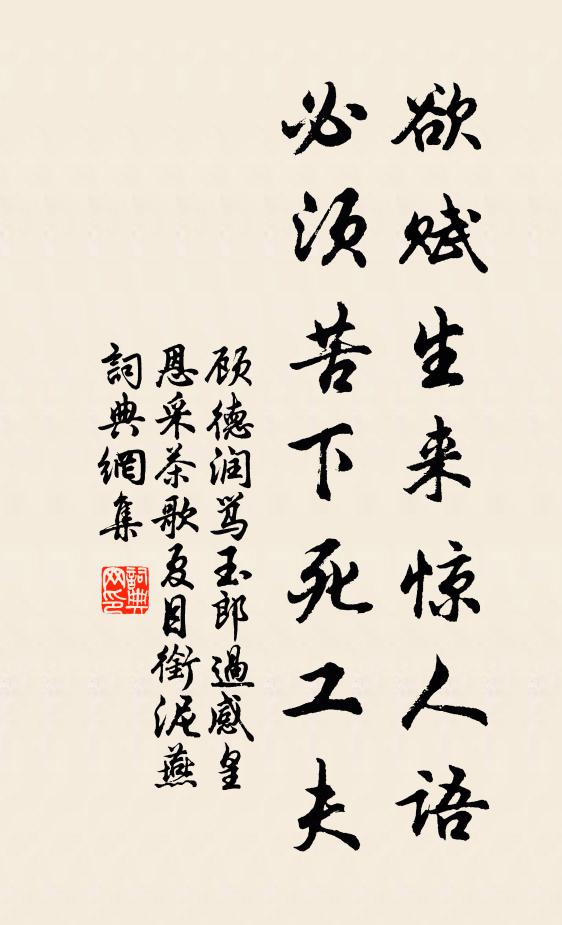 欲赋生来惊人语
必须苦下死工夫
顾德润骂玉郎過感皇
恩采茶歌夏目銜泥燕
詞典網集
詞典
网印